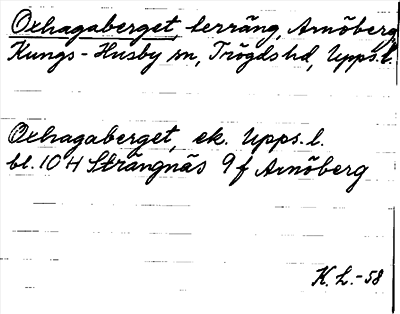 Oxhagaberget, terräng, Arnöberg,
Kungs-Husby sn, Trögds hd, Upps.l.
Oxhagaberget, ek. Upps.l.
bl. 10 H Strängnäs 9f Arnöberg
K.L.-58